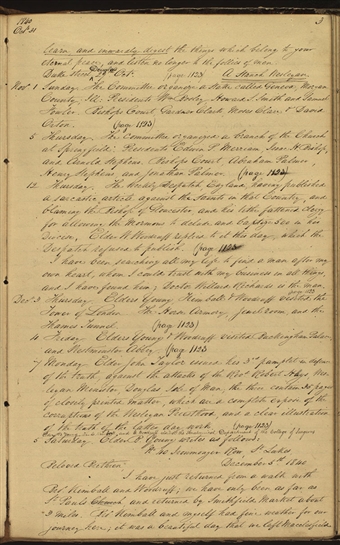 1840
Oct 31
3
learn, and inwardly digest the things which belong to your
eternal peace, and listen no longer to the follies of men.
Duke Street Douglas 29 Oct. (page 1123) A Staunch Wesleyan.
Nov 1 Sunday. The Committee organize a Stake called Geneva, Morgan
County, Ill. Presidents Wm Bosley, Howard S. Smith and Samuel
Fowler. Bishops Court, Gardner Clark, Moses Clare & David
Orton. (page 1123)
5 Thursday. The Committee organized a Branch of the Church
at Springfield; Presidents Edwin P. Merriam, Isaac H. Bishop,
and Arnold Stephens. Bishops Court Abraham Palmer
Henry Stephens and Jonathan Palmer. (page 1123)
12 Thursday. The Weekly Despatch England, having published
a sarcastic article against the Saints in that Country, and
blaming the Bishop of Gloucester, and his other fattened clergy
for allowing the Mormons to delude and baptize &c in his
Diocese, Elder W. Woodruff replied to it this day, which the
Despatch refused to publish. (page 1123)
I have been searching all my life to find a man after my
own heart, whom I could trust with my business in all things,
and I have found him; Doctor Willard Richards is the man.
page 1123
Dec 3 Thursday Elders Young, Kimball & Woodruff visited the
Tower of London, The Horse Armory, Jewel room, and the
Thames Tunnel. (page 1123)
4 Friday Elders Young & Woodruff visited Buckingham Palace
and Westminster Abbey (page 1123
7 Monday Elder John Taylor issued his 3d pamphlet in defence
of the truth, against the attacks of the Revd Robert Heys Wes-
leyan Minister, Douglas Isle of Man, the three contain 35 pages
of closely printed matter, which are a complete expose of the
corruptions of the Wesleyan Priesthood, and a clear illustration
of the truth of the latter day work. (page 1123)
College of Surgeons
5 Saturday Elder B. Young writes as follows:
40 Ironmonger Row, St Lukes
Beloved Brethren December 5th 1840
I have just returned from a walk with
Bro Kimball and Woodruff; we have only been as far as
St Paul's and returned by Smithfield Market about
3 miles. Bro Kimball and myself had fine weather for our
journey here; it was a beautiful day that we left Macclesfield